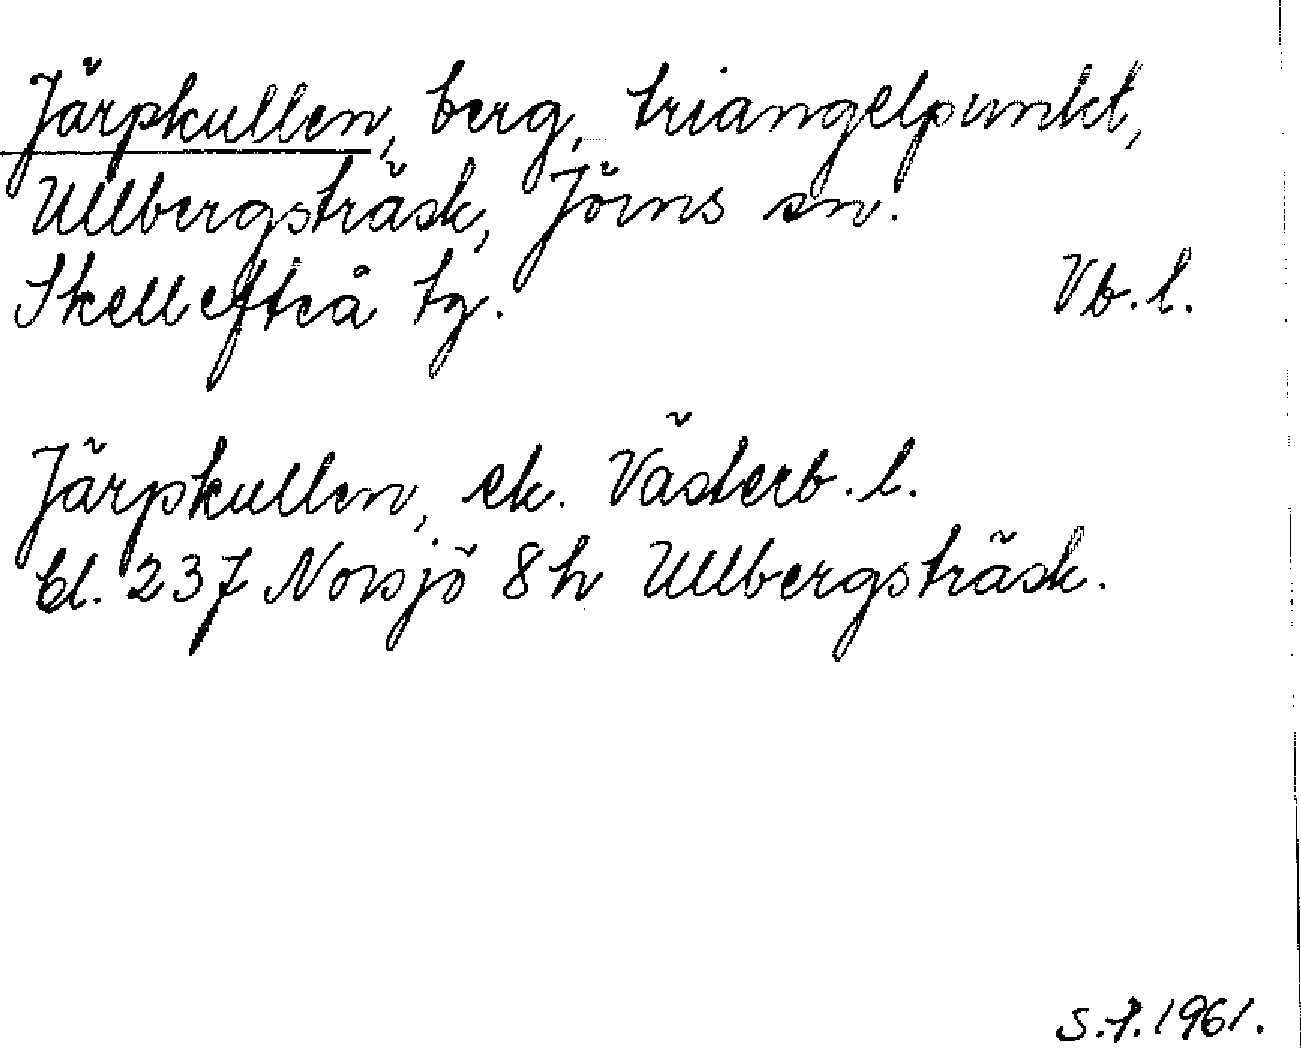 Järpkullen, berg, triangelpunkt,
Ullbergsträsk, Jörns sn.
Skellefteå tg. Vb. l.
Järpkullen, ek. Västerb. l.
bl. 237 Norsjö 8h Ullbergsträsk.
S.F. 1961.